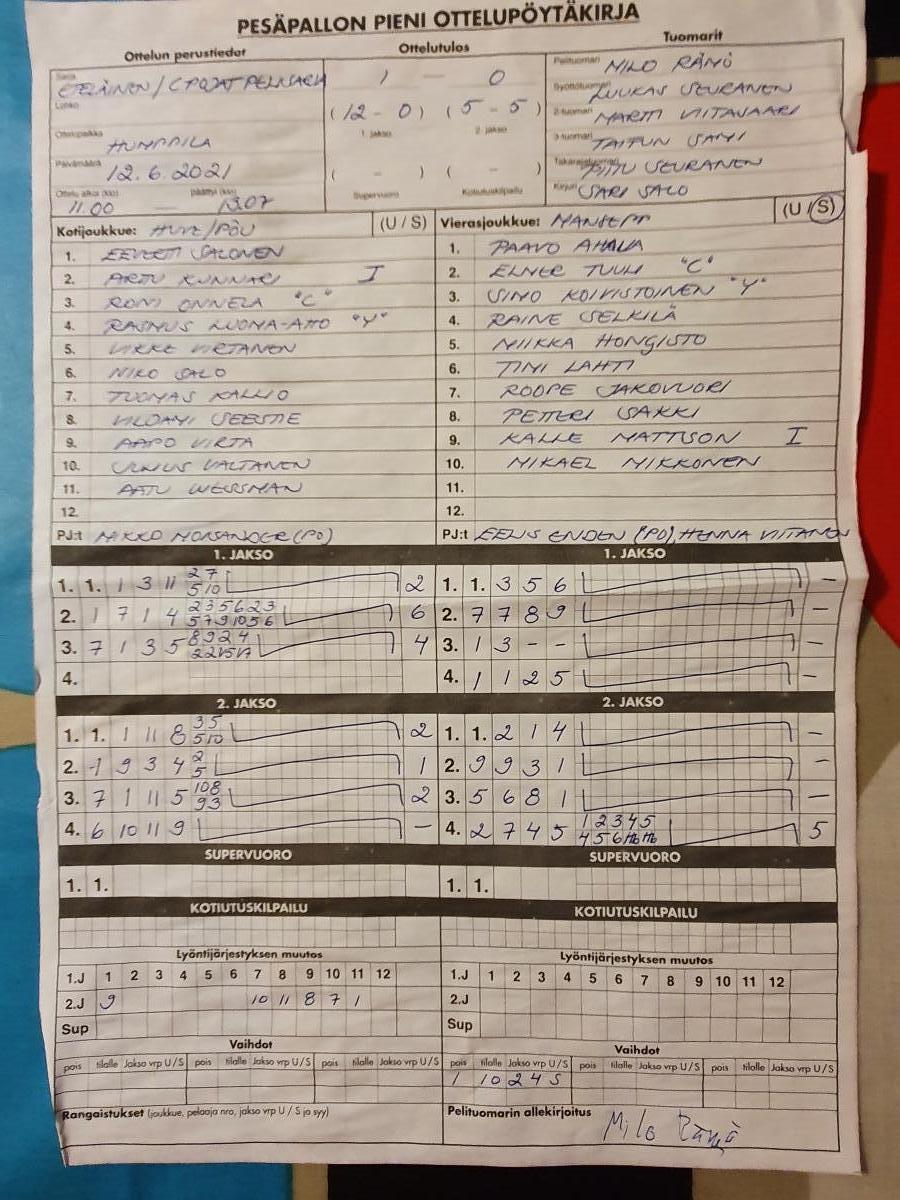 PESÄPALLON PIENI OTTELUPÖYTÄKIRJA
Ottelun perustiedot Ottelutulos Tuomarit
Sarja ETELÄINEN / C POJAT 1 - 0 Pelituomari MILO RÄMÖ
Lohko (12 - 0) (5 - 5) Syöttötuomari LUUKAS SEURANEN
1. jakso 2. jakso 2-tuomari MARTTI VIITASAARI
Ottelupaikka HUMPPILA 3-tuomari TAITUN SAMI
Päivämäärä 12.6.2021 ( - ) ( - ) Takarajatuomari SEURANEN
Ottelu alkoi (klo) 11.00 päättyi (klo) 13.07 Supervuoro Kotiutuskilpailu Kirjuri SARI SALO
Kotijoukkue: HUVE/PÖU (U / S) Vierasjoukkue: MANSEPP (U / S)
1. EEVERTI SALONEN 1. PAAVO AHALA
2. ARTTU KUNNARI I 2. ELMER TUULI "C"
3. RONI ONNELA "C" 3. SIMO KOIVISTOINEN "Y"
4. RASMUS LUOMA-AHO "Y" 4. RAINE SELKILÄ
5. VIRTANEN 5. MIIKKA HONGISTO
6. NIKO SALO 6. TIMI LAHTI
7. TUOMAS KALLIO 7. ROOPE JAKOVUORI
8. SEESTIE 8. PETTERI SAKKI
9. AAPO VIRTA 9. KALLE MATTSON I
10. VALTANEN 10. MIKAEL MIKKONEN
11. AATU 11.
12. 12.
PJ:t MIKKO (PO) PJ:t EELIS ENDEN (PO), HENNA VIITANEN
1. JAKSO 1. JAKSO
1. 1. 1 3 11 2 7 2 1. 1. 3 5 6 -
5 10
2. 1 7 1 4 2 3 5 6 2 3 6 2. 7 7 8 9 -
5 7 9 10 5 6
3. 7 1 3 5 8 9 2 4 4 3. 1 3 - - -
4. 4. 1 1 2 5 -
2. JAKSO 2. JAKSO
1. 1. 1 11 8 3 5 2 1. 1. 2 1 4 -
5 10
2. -1 9 3 4 2 1 2. 9 9 3 1 -
5
3. 7 1 11 5 10 8 2 3. 5 6 8 1 -
9 3
4. 6 10 11 9 - 4. 2 7 4 5 1 2 3 4 5 5
4 5 6
SUPERVUORO SUPERVUORO
1. 1. 1. 1.
KOTIUTUSKILPAILU KOTIUTUSKILPAILU
Lyöntijärjestyksen muutos Lyöntijärjestyksen muutos
1.J 1 2 3 4 5 6 7 8 9 10 11 12 1.J 1 2 3 4 5 6 7 8 9 10 11 12
2.J 9 10 11 8 7 1 2.J
Sup Sup
Vaihdot Vaihdot
pois tilalle Jakso vrp U / S pois tilalle Jakso vrp U / S pois tilalle Jakso vrp U / S pois tilalle Jakso vrp U / S pois tilalle Jakso vrp U / S pois tilalle Jakso vrp U / S
1 10 2 4 S
Rangaistukset (joukkue, pelaaja nro, jakso vrp U / S ja syy) Pelituomarin allekirjoitus
Milo Rämö